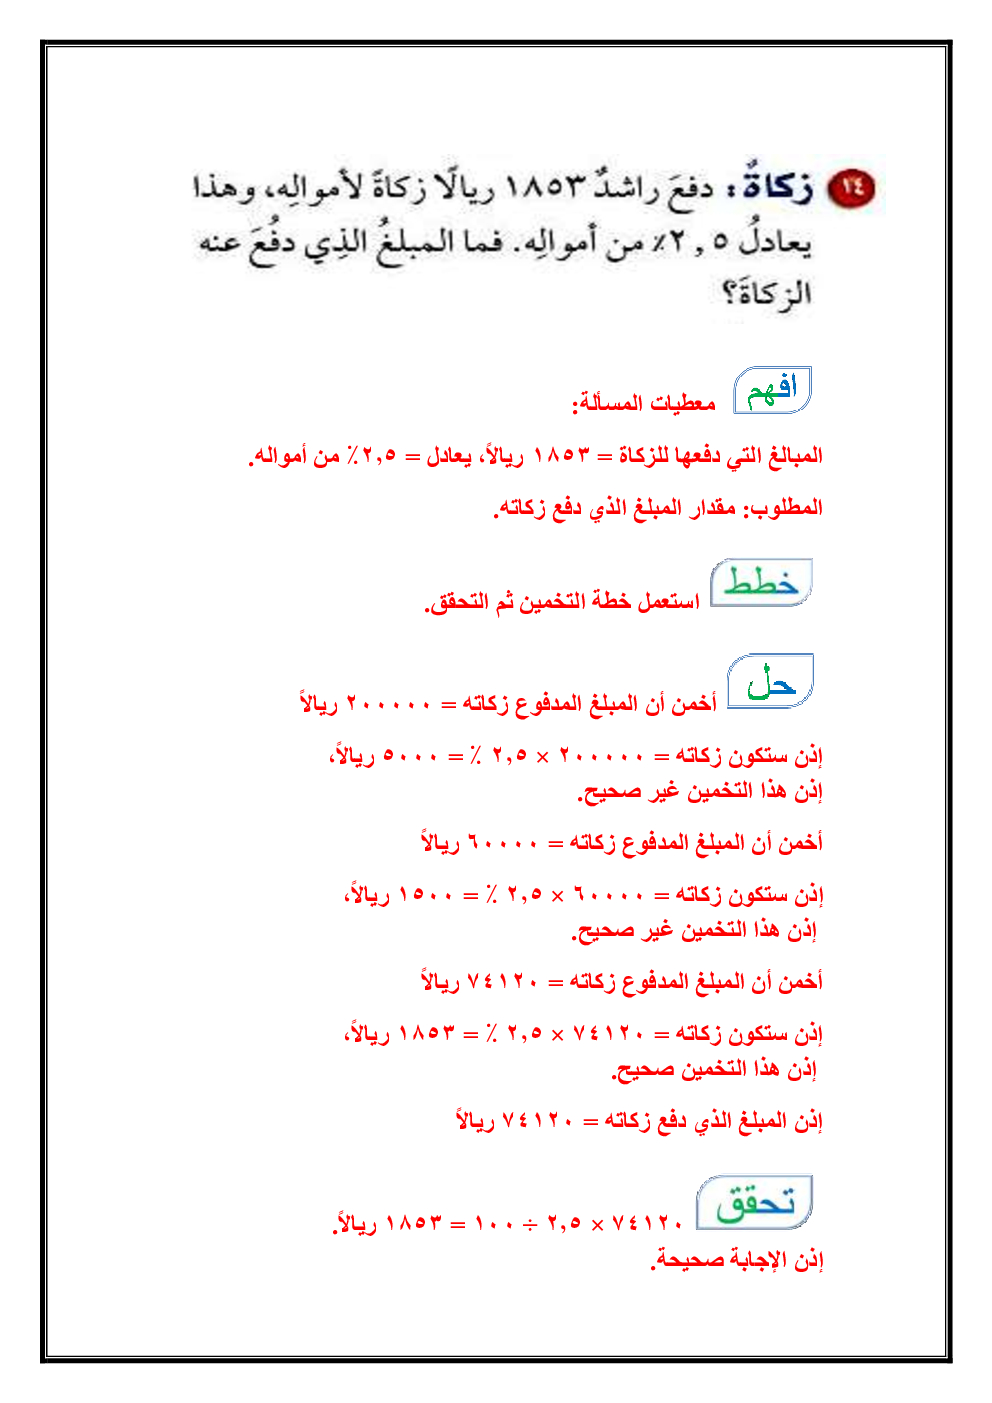 ١٤ زكاةٌ: دفعَ راشدٌ ١٨٥٣ ريالًا زكاةً لأموالِه، وهذا
يعادلُ ٢,٥٪ من أموالِه. فما المبلغُ الذِي دفُعَ عنه
الزكاةَ؟
افهم معطيات المسألة:
المبالغ التي دفعها للزكاة = ١٨٥٣ ريالاً، يعادل = ٢,٥٪ من أمواله.
المطلوب: مقدار المبلغ الذي دفع زكاته.
خطط استعمل خطة التخمين ثم التحقق.
حل أخمن أن المبلغ المدفوع زكاته = ٢٠٠٠٠٠ ريالاً
إذن ستكون زكاته = ٢٠٠٠٠٠ × ٢,٥ ٪ = ٥٠٠٠ ريالاً،
إذن هذا التخمين غير صحيح.
أخمن أن المبلغ المدفوع زكاته = ٦٠٠٠٠ ريالاً
إذن ستكون زكاته = ٦٠٠٠٠ × ٢,٥ ٪ = ١٥٠٠ ريالاً،
إذن هذا التخمين غير صحيح.
أخمن أن المبلغ المدفوع زكاته = ٧٤١٢٠ ريالاً
إذن ستكون زكاته = ٧٤١٢٠ × ٢,٥ ٪ = ١٨٥٣ ريالاً،
إذن هذا التخمين صحيح.
إذن المبلغ الذي دفع زكاته = ٧٤١٢٠ ريالاً
تحقق ٧٤١٢٠ × ٢,٥ ÷ ١٠٠ = ١٨٥٣ ريالاً.
إذن الإجابة صحيحة.